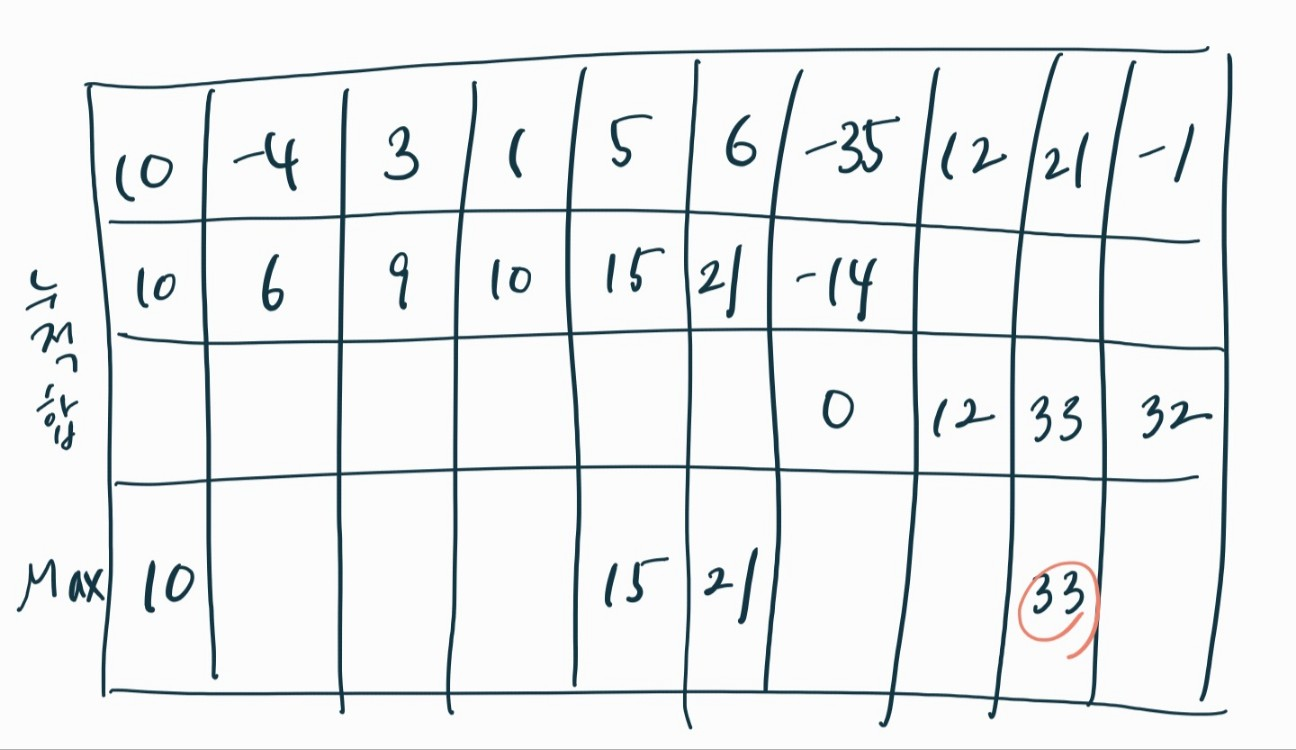 10 -4 3 1 5 6 -35 12 21 -1
누적합
10 6 9 10 15 21 -14
0 12 33 32
Max 10 15 21 33